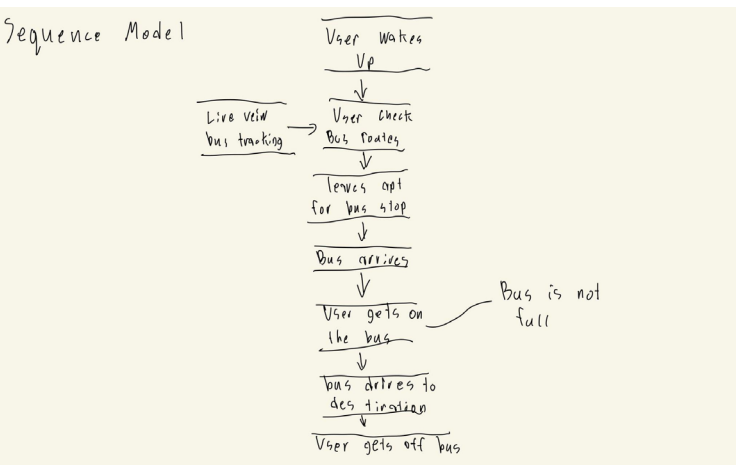 Sequence Model
User wakes
Up
Live veiw
bus tracking
User check
Bus routes
leaves apt
for bus stop
Bus arrives
User gets on
the bus
Bus is not
full
bus drives to
destination
User gets off bus